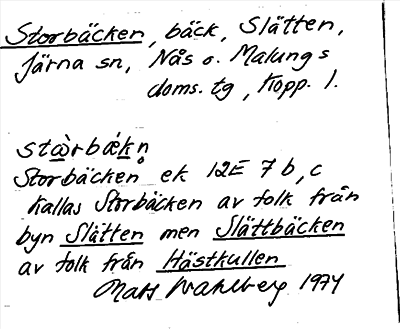 Storbäcken, bäck, Slätten,
Järna sn, Nås o. Malungs
doms. tg, Kopp. l.
stå̱̀rbǽḵn̥
Storbäcken ek 12E 7b, c
kallas Storbäcken av folk från
byn Slätten men Slättbäcken
av folk från Hästkullen
Mats Wahlberg 1974